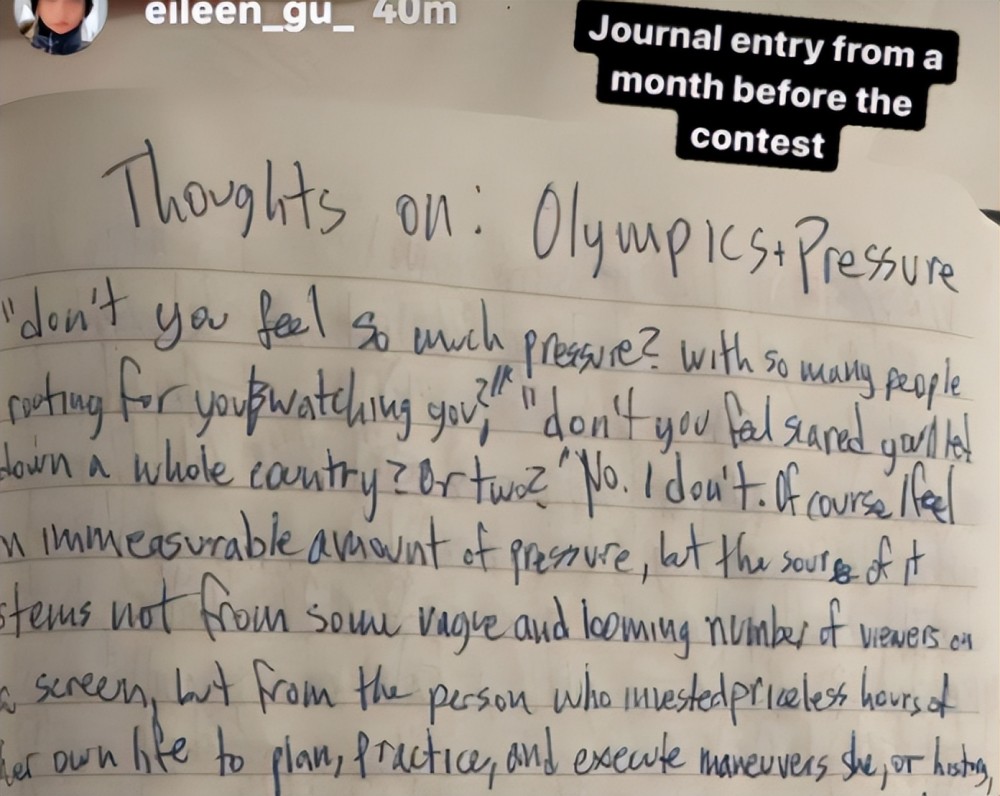 eileen_gu_ 40m
Journal entry from a
month before the
contest
Thoughts on: Olympics + Pressure
"don't you feel so much pressure? With so many people
rooting for you & watching you?" "don't you feel scared you'll let
down a whole country? Or two?" No. I don't. Of course I feel
n immeasurable amount of pressure, but the source of it
stems not from some vague and looming number of viewers on
a screen, but from the person who invested priceless hours of
her own life to plan, practice, and execute maneuvers she, or history,